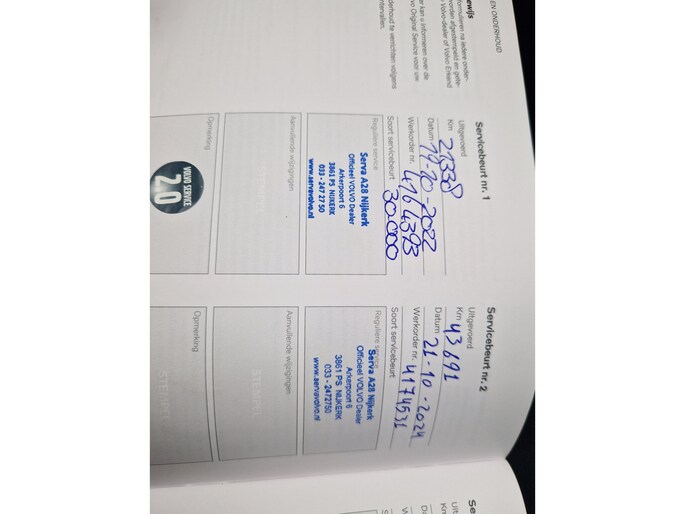 EN ONDERHOUD
ewijs
Servicebeurt nr. 1
Uitgevoerd
Km 21338
Datum 19-10-2022
Werkorder nr. 4164393
Soort servicebeurt 30.000
Reguliere service
Serva A28 Nijkerk
Officieel VOLVO Dealer
Arkerpoort 6
3861 PS NIJKERK
033 - 247 27 50
www.servavolvo.nl
Aanvullende wijzigingen
Opmerking
VOLVO SERVICE
2.0
Servicebeurt nr. 2
Uitgevoerd
Km 43691
Datum 21-10-2024
Werkorder nr. 4174531
Soort servicebeurt
Reguliere service
Serva A28 Nijkerk
Officieel VOLVO Dealer
Arkerpoort 6
3861 PS NIJKERK
033 - 2472750
www.servavolvo.nl
Aanvullende wijzigingen
STEMPEL
Opmerking
Se
Uit
Km